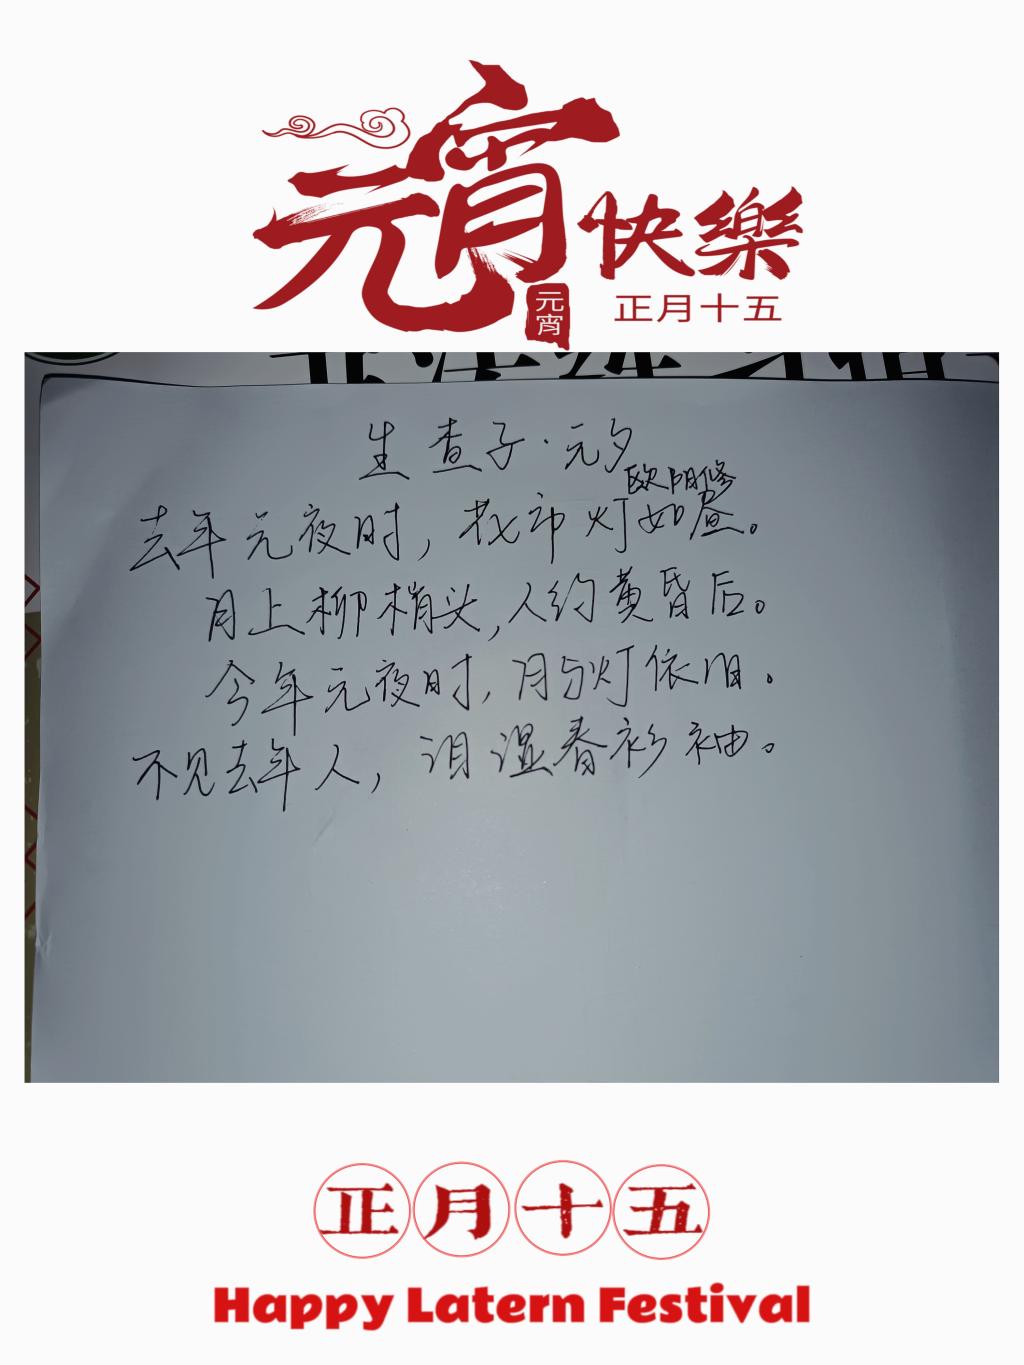 元宵快樂
元宵
正月十五
生查子·元夕
欧阳修
去年元夜时，花市灯如昼。
月上柳梢头，人约黄昏后。
今年元夜时，月与灯依旧。
不见去年人，泪湿春衫袖。
正月十五
Happy Latern Festival